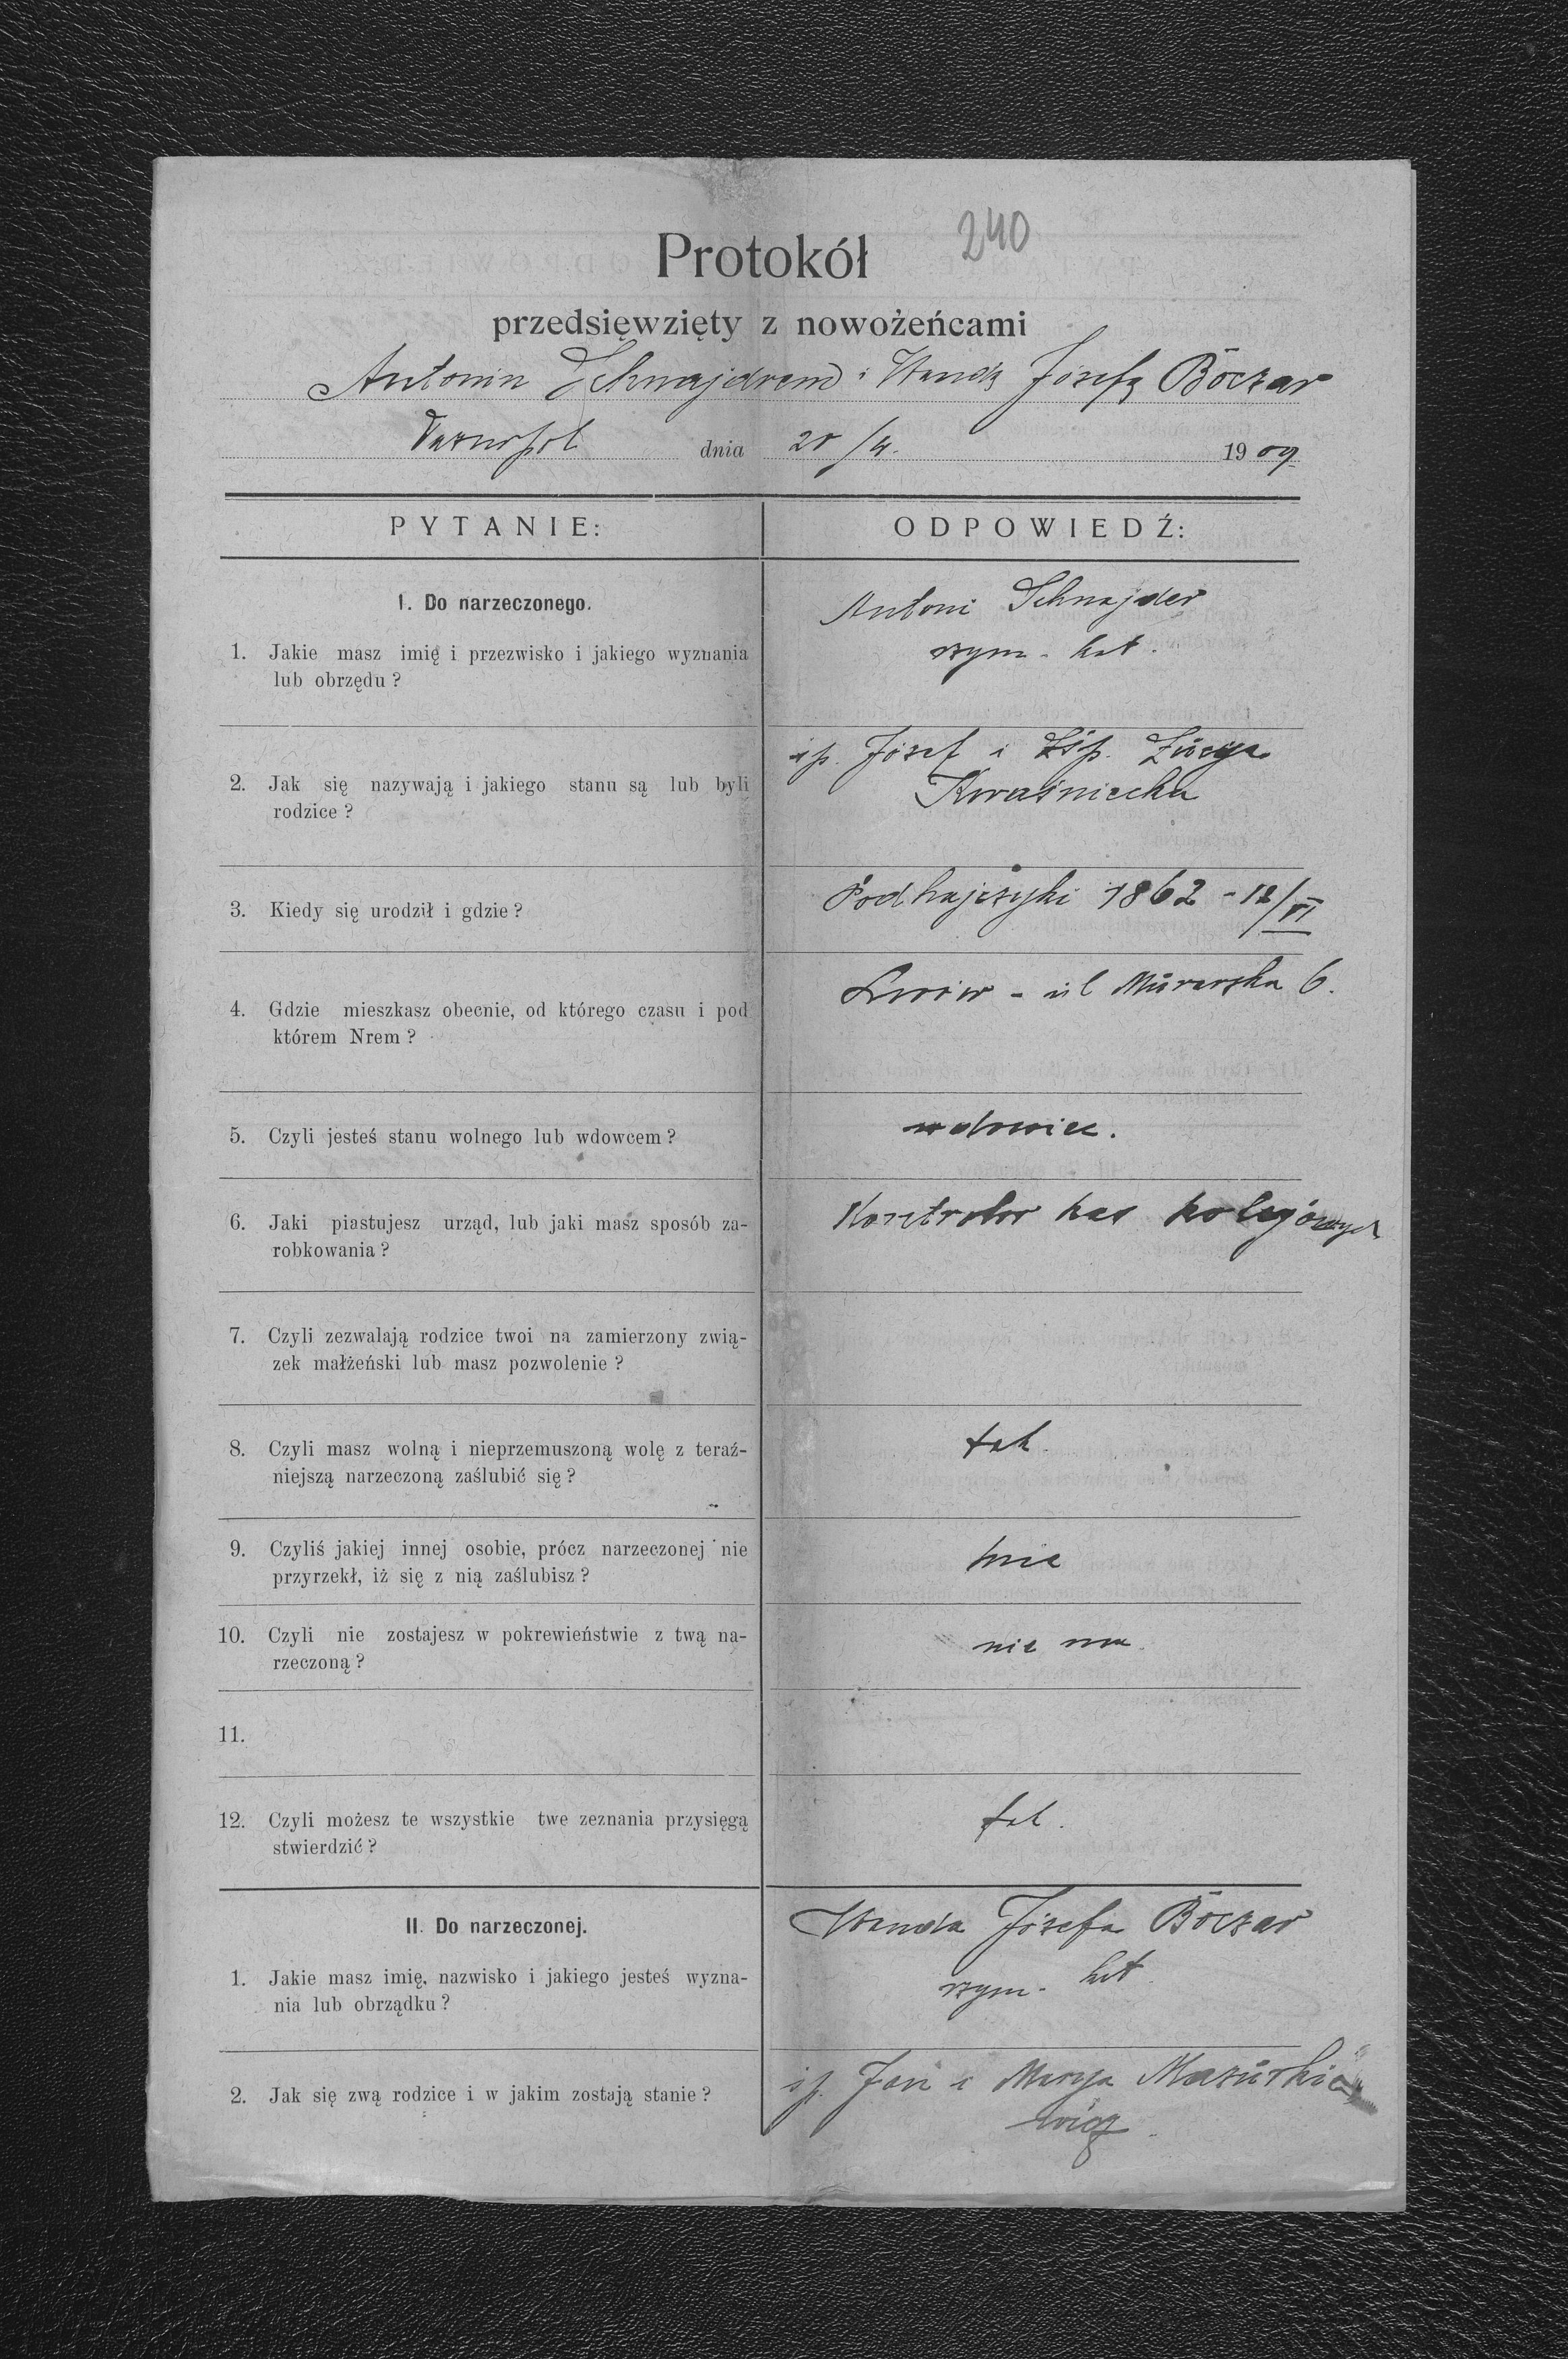 240
Protokół
przedsięwzięty z nowożeńcami
Antonim Schnajdrem i Wandą Józefą Böczar
Tarnopol dnia 20/4. 1909
PYTANIE: ODPOWIEDŹ:
I. Do narzeczonego.
1. Jakie masz imię i przezwisko i jakiego wyznania
lub obrzędu?
Antoni Schnajder
rzym. kat.
2. Jak się nazywają i jakiego stanu są lub byli
rodzice?
śp. Józef i śp. Łucya
Kwaśniecka
3. Kiedy się urodził i gdzie?
Podhajczyki 1862 - 12/VI
4. Gdzie mieszkasz obecnie, od którego czasu i pod
którem Nrem?
Lwów - ul Murarska 6.
5. Czyli jesteś stanu wolnego lub wdowcem?
wdowiec.
6. Jaki piastujesz urząd, lub jaki masz sposób za-
robkowania?
Kontrolor kas kolejowych
7. Czyli zezwalają rodzice twoi na zamierzony zwią-
zek małżeński lub masz pozwolenie?
8. Czyli masz wolną i nieprzemuszoną wolę z teraź-
niejszą narzeczoną zaślubić się?
tak.
9. Czyliś jakiej innej osobie, prócz narzeczonej nie
przyrzekł, iż się z nią zaślubisz?
nie
10. Czyli nie zostajesz w pokrewieństwie z twą na-
rzeczoną?
nie ma.
11.
12. Czyli możesz te wszystkie twe zeznania przysięgą
stwierdzić?
tak.
II. Do narzeczonej.
1. Jakie masz imię, nazwisko i jakiego jesteś wyzna-
nia lub obrządku?
Wanda Józefa Böczar
rzym. kat.
2. Jak się zwą rodzice i w jakim zostają stanie?
śp. Jan i Marya Mazurkie
wicz.